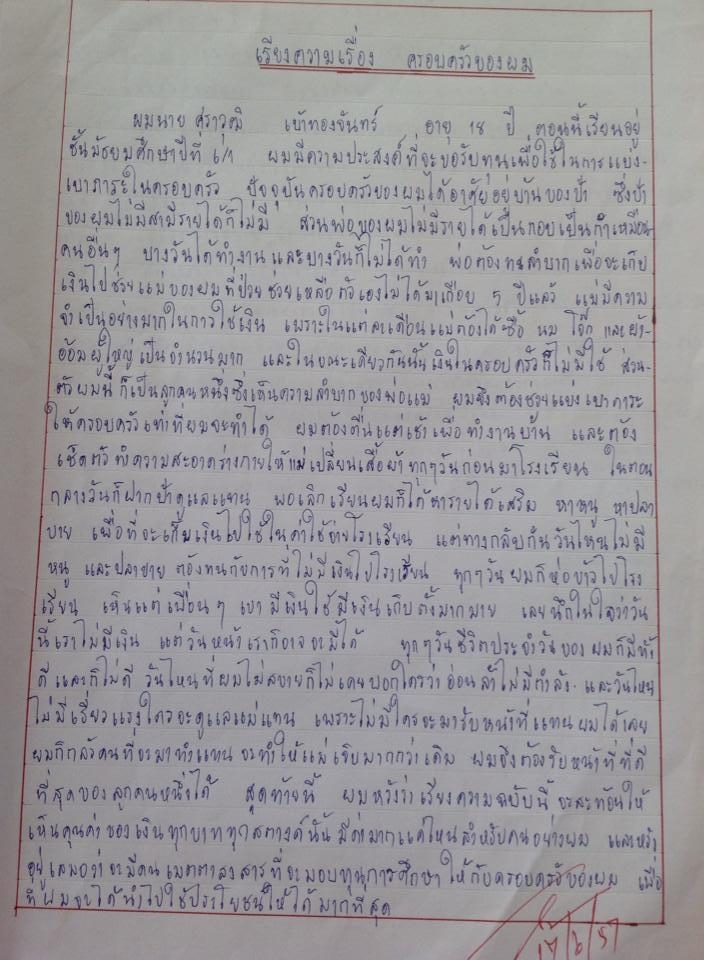 เรียงความเรื่อง ครอบครัวของผม
ผมนาย ศุราวุฒิ เบ้าทองจันทร์ อายุ 18 ปี ตอนนี้เรียนอยู่
ชั้นมัธยมศึกษาปีที่ 6/1 ผมมีความประสงค์ที่จะขอรับทุนเพื่อใช้ในการแบ่ง-
เบาภาระในครอบครัว ปัจจุบันครอบครัวของผมได้อาศัยอยู่บ้านของป้า ซึ่งป้า
ของผมไม่มีสามีรายได้ก็ไม่มี ส่วนพ่อของผมไม่มีรายได้เป็นกอบเป็นกำเหมือน
คนอื่นๆ บางวันได้ทำงาน และบางวันก็ไม่ได้ทำ พ่อต้องทนลำบากเพื่อจะเก็บ
เงินไปช่วยแม่ของผมที่ป่วยช่วยเหลือตัวเองไม่ได้มาเกือบ 5 ปีแล้ว แม่มีความ
จำเป็นอย่างมากในการใช้เงิน เพราะในแต่ละเดือนแม่ต้องได้ซื้อ นม โจ๊ก และผ้า-
อ้อมผู้ใหญ่เป็นจำนวนมาก และในขณะเดียวกันนั้นเงินในครอบครัวก็ไม่มีใช้ ส่วน-
ตัวผมนี้ก็เป็นลูกคนหนึ่งซึ่งเห็นความลำบากของพ่อแม่ ผมจึงต้องช่วยแบ่งเบาภาระ
ให้ครอบครัวเท่าที่ผมจะทำได้ ผมต้องตื่นแต่เช้าเพื่อทำงานบ้าน และต้อง
เช็ดตัวทำความสะอาดร่างกายให้แม่เปลี่ยนเสื้อผ้าทุกๆวันก่อนมาโรงเรียน ในตอน
กลางวันก็ฝากป้าดูแลแทน พอเลิกเรียนผมก็ได้หารายได้เสริม หาหนู หาปลา
ขาย เพื่อที่จะเก็บเงินไปใช้ในค่าใช้จ่ายโรงเรียน แต่ทางกลับกันวันไหนไม่มี
หนู และปลาขาย ต้องทนกับการที่ไม่มีเงินไปโรงเรียน ทุกๆวันผมก็ห่อข้าวไปโรง
เรียน เห็นแต่เพื่อนๆ เขามีเงินใช้มีเงินเก็บตั้งมากมาย เลยนึกในใจว่าวัน
นี้เราไม่มีเงิน แต่วันหน้าเราก็อาจจะมีได้ ทุกๆวันชีวิตประจำวันของผมก็มีทั้ง
ดีและก็ไม่ดี วันไหนที่ผมไม่สบายก็ไม่เคยบอกใครว่าอ่อนล้าไม่มีกำลัง และวันไหน
ไม่มีเรี่ยวแรงใครจะดูแลแม่แทน เพราะไม่มีใครจะมารับหน้าที่แทนผมได้เลย
ผมก็กลัวคนที่จะมาทำแทน จะทำให้แม่เจ็บมากกว่าเดิม ผมจึงต้องรับหน้าที่ที่ดี
ที่สุดของลูกคนหนึ่งได้ สุดท้ายนี้ ผมหวังว่าเรียงความฉบับนี้จะสะท้อนให้
เห็นคุณค่าของเงินทุกบาททุกสตางค์นั้นมีค่ามากแค่ไหนสำหรับคนอย่างผม และหวัง
อยู่เสมอว่าจะมีคนเมตตาสงสารที่จะมอบทุนการศึกษาให้กับครอบครัวของผม เพื่อ
ที่ผมจะได้นำไปใช้ประโยชน์ให้ได้มากที่สุด
17/6/57